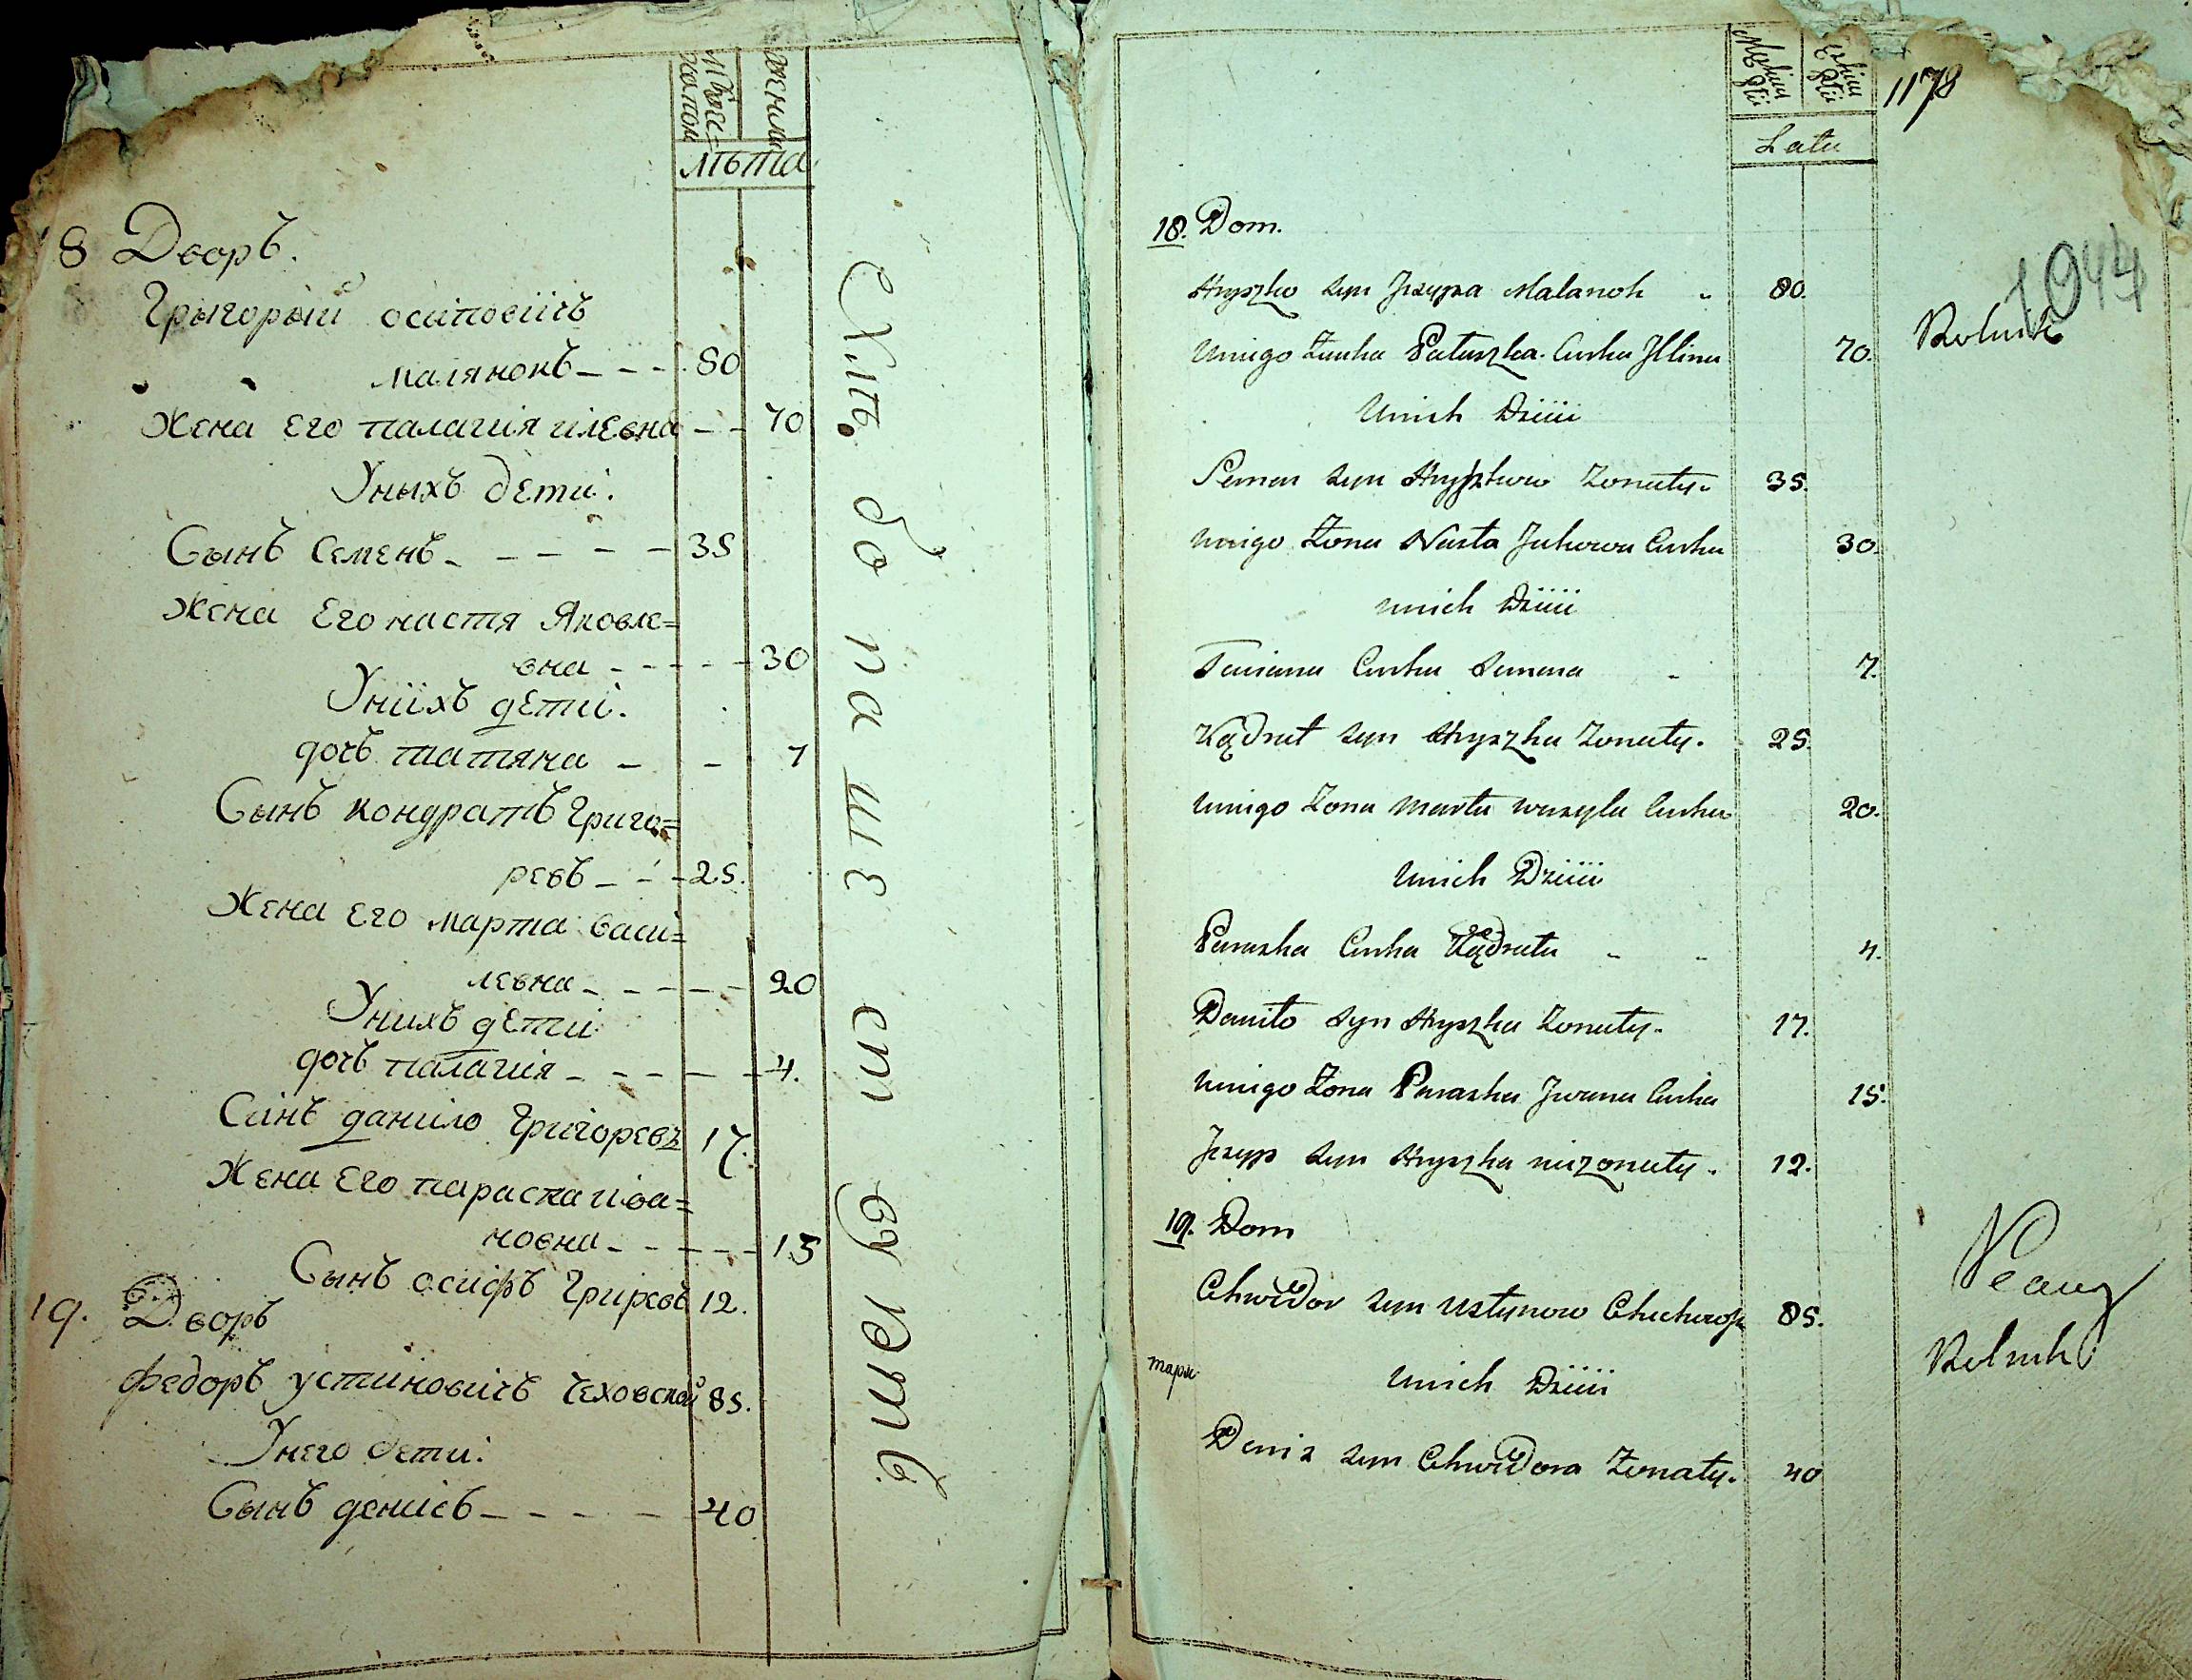 мужеска
полом
женска
лѣта
8 Дворъ.
Григорый осиповичъ
малянокъ - - - 80
Жена Его палагия илевна - - 70
Уныхъ дети.
Сынъ Семенъ - - - - - 35
Жена Его настя Яковле=
вна - - - - - 30
Унихъ дети.
дочъ татяна - - 7
Сынъ кондратъ Григо=
ревъ - - - 25.
Жена Его марта васи=
левна - - - - - 20
Унихъ дети
дочъ палагия - - - - - 4.
Синъ данило Григоревъ 17.
Жена Его параска ива=
новна - - - - - 15
Сынъ осифъ Григревъ 12.
19. Дворъ
федоръ устиновичъ Чеховской 85.
Унего дети:
Сынъ денисъ - - - - 40
Хлѣбопашествуэтъ
Latu
1178
1944
18. Dom.
Hryszko syn Jzypa Malanok 80.
Uniego Zonka Pałaszka Curka Jllina 70.
Rolnik
Unich Dzieci
Semen syn Hryszkow Zonaty 35.
Uniego Zona Nasta Jakowa Curka 30.
Unich Dzieci
Taciana Curka Semena 7.
Kądrat syn Hryszka Zonaty. 25.
Uniego Zona Marta wasyla Curka 20.
Unich Dzieci
Paraska Curka Kądrata 4.
Daniło syn Hryszka Zonaty. 17.
Uniego Zona Paraska Jwana Curka 15.
Jzyp syn Hryszka niezonaty. 12.
19. Dom
Chwedor syn Ustynow 85.
Unich Dzieci
Rolnik
Denis syn Chwedora Zonaty. 40